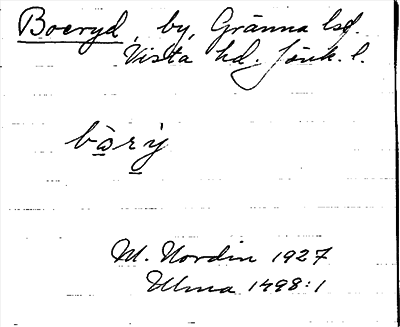 Boeryd, by, Gränna lsf.
Vista hd. Jönk. l.
bò̲rỳ̲
M. Nordin 1927
Ulma 1498:1